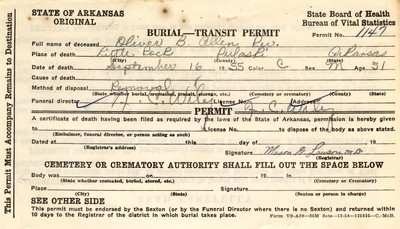 STATE OF ARKANSAS State Board of Health
ORIGINAL Bureau of Vital Statistics
BURIAL—TRANSIT PERMIT Permit No. 1147
Full name of deceased Oliver B. Allen
Place of death Little Rock Pulaski Arkansas
(City) (County) (State)
Date of death September 16 1955 Color C Sex M Age 51
Cause of death
Method of disposal Removal
(State whether cremated, burial, storage, etc.) (Cemetery or crematory)
Funeral director License No. Address
PERMIT
A certificate of death having been filed as required by the laws of the State of Arkansas, permission is hereby given
to License No. to dispose of the body as above stated.
(Embalmer, funeral director, or person acting as such)
Dated 19 Signature Mason G. Lawson M.D.
(Registrar's address) (Signature of registrar)
CEMETERY OR CREMATORY AUTHORITY SHALL FILL OUT THE SPACE BELOW
Body was on , 19 in
(State whether cremated, buried, stored, etc.) (Cemetery or crematory)
Place Signature
(City) (County) (State) (Sexton or person in charge)
SEE OTHER SIDE
This permit must be endorsed by the Sexton (or by the Funeral Director where there is no Sexton) and returned within
10 days to the Registrar of the district in which burial takes place.
This Permit Must Accompany Remains to Destination